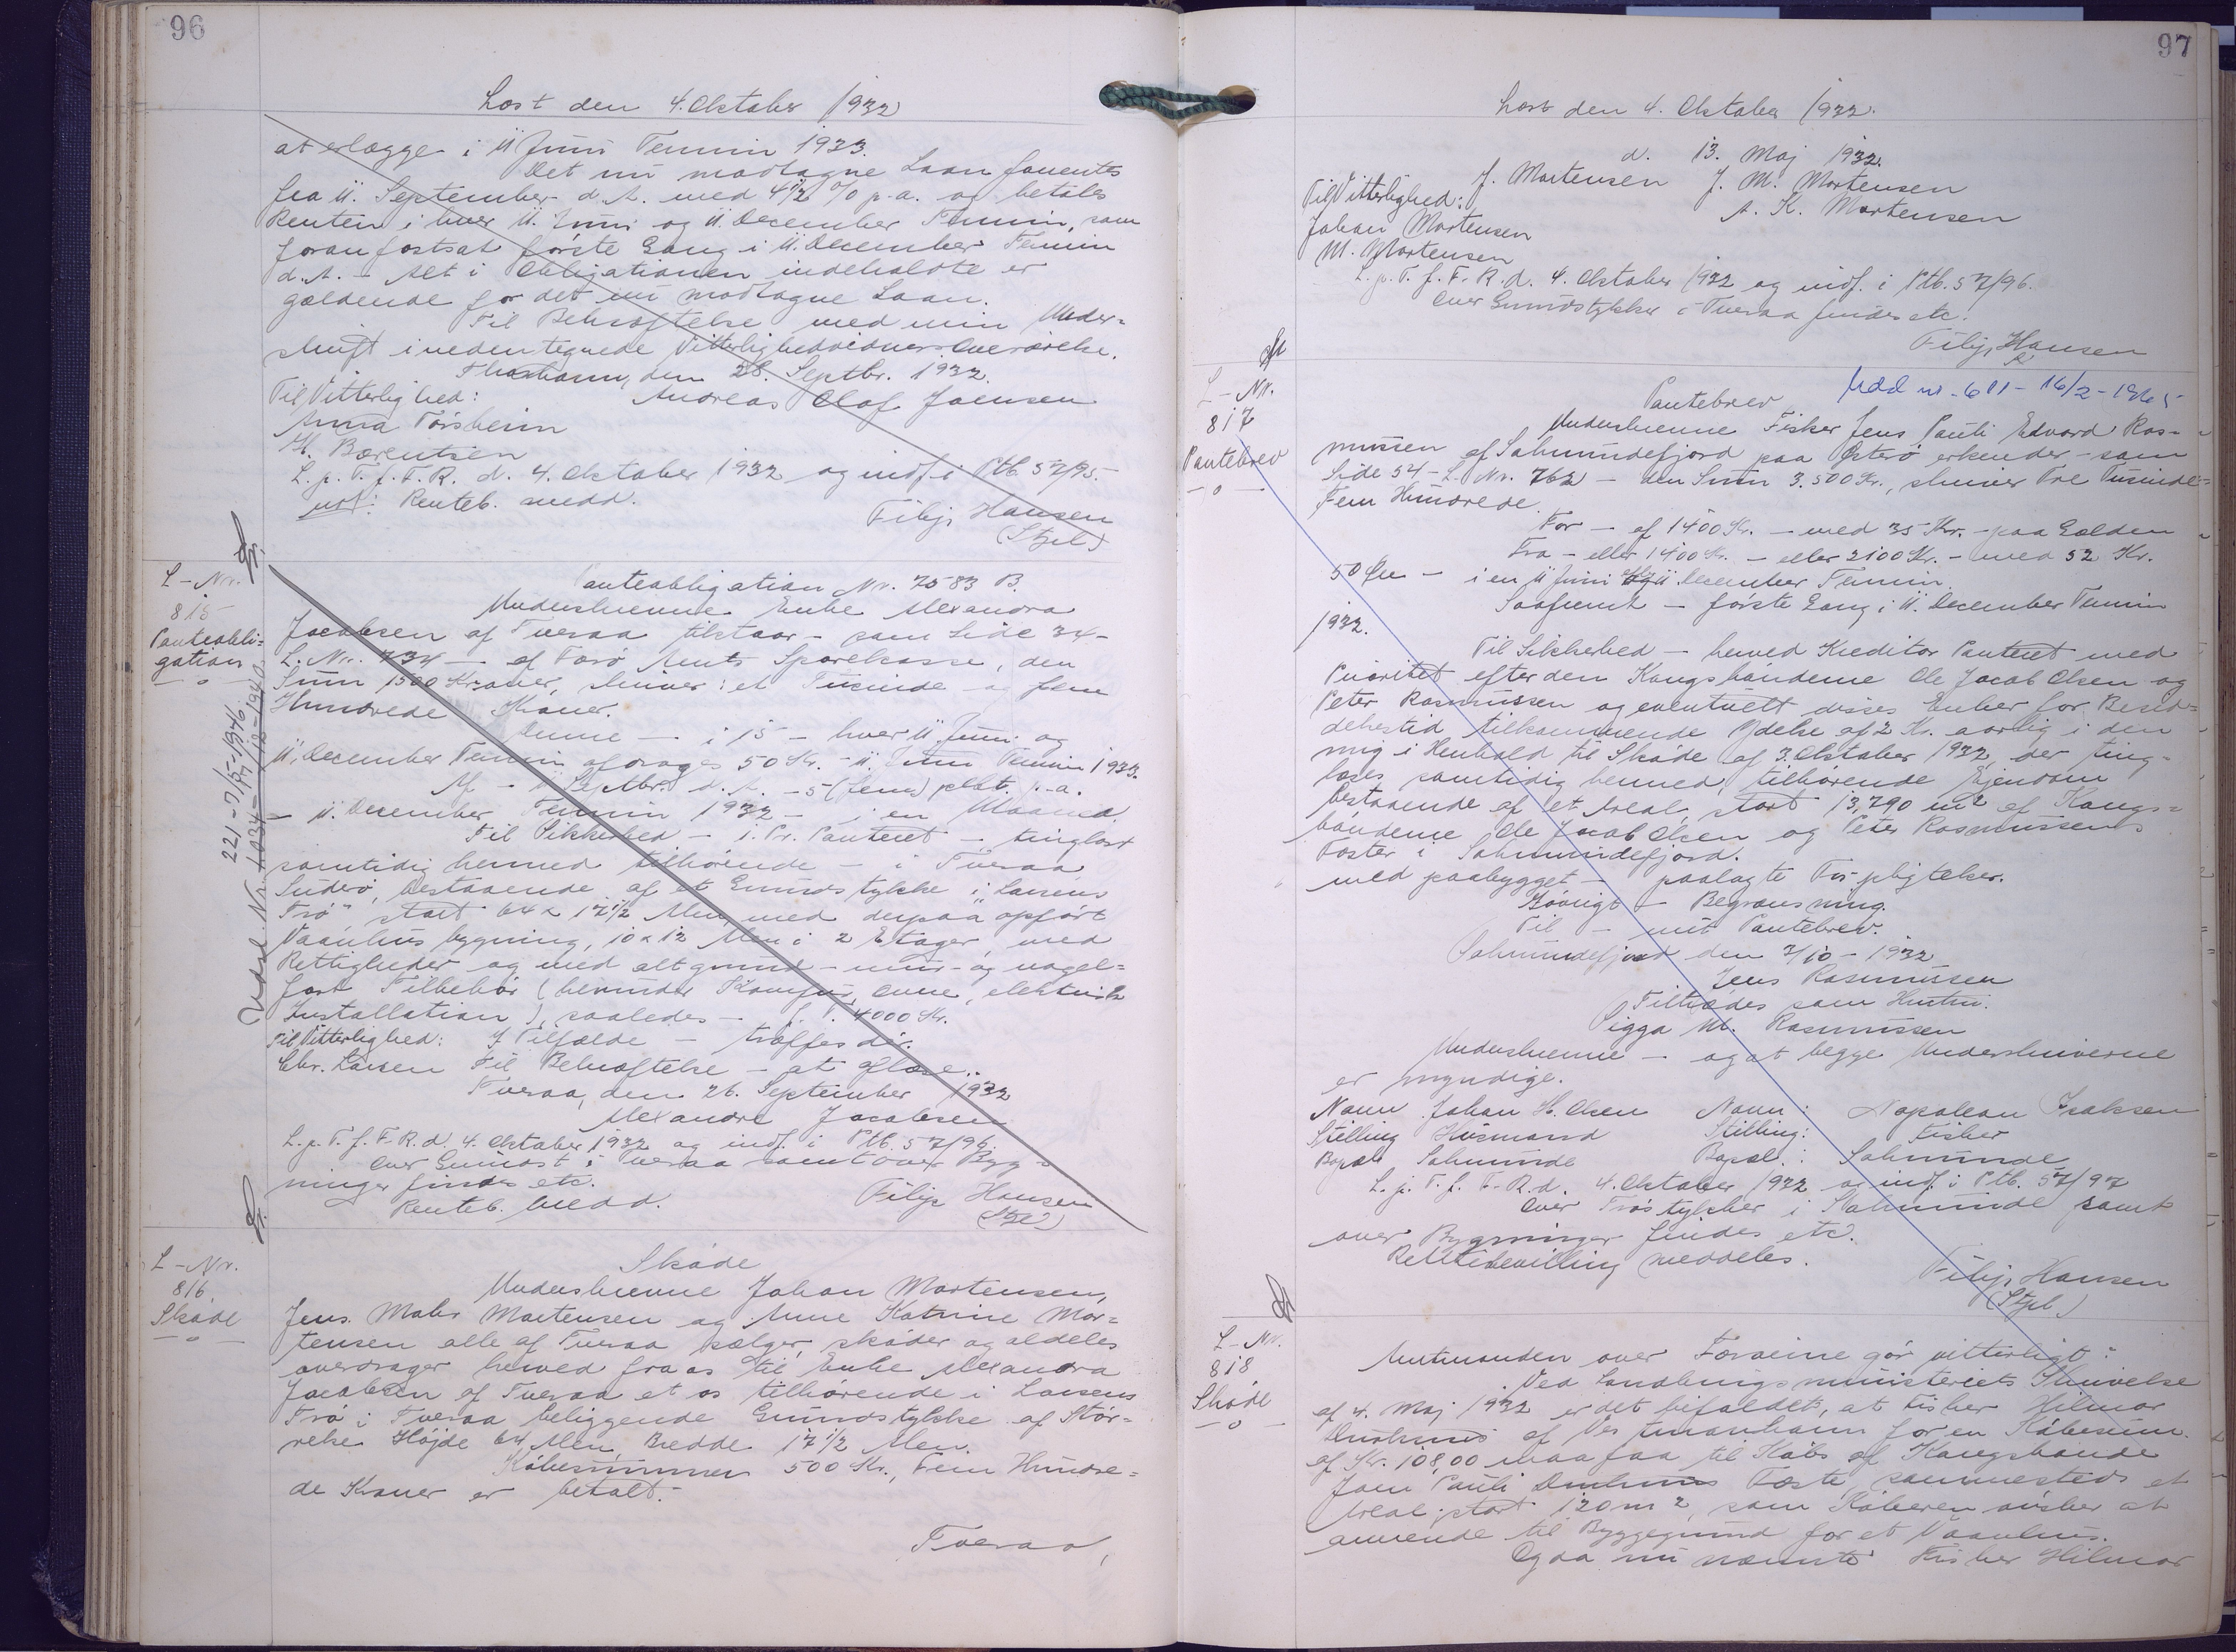 96
Læst den 4. Oktober 1932
at erlægge i 11 Juni Termin 1933.
Det nu modtagne Laan forrentes
fra 11. September d. A. med 4 1/2 % p.a. og betales
Renten i hver 11. Juni og 11. December Termin, som
foran fastsat første Gang i 11. December Termin
d. A. - Alt i Obligationen indeholdte er
gældende for det nu modtagne Laan.
Til Bekræftelse med min Under=
skrift i nedentegnede Vitterlighedsvidners Overværelse.
Thorshavn, den 28. Septbr. 1932.
Til Vitterlighed: Andreas Olaf Joensen
Anna Tórsheim
H. Bærentsen
L. p. T. f. F. R. d. 4. Oktober 1932 og indf. i Ptb. 57/95.
not: Renteb. medd.
Filip Hansen
(Stpl)
L-Nr.
815
Panteobli=
gation
Udsl. Nr. 1034-17/12-1940
221-7/5-1946
Panteobligation Nr. 7583 B.
Underskrevne Enke Alexandra
Jacobsen af Tveraa tilstaar - som Side 34-
L. Nr. 734 - af Færø Amts Sparekasse, den
Sum 1500 Kroner, skriver: et Tusinde og fem
Hundrede Kroner.
Denne - i 15 - hver 11 Juni og
11. December Termin afdrages 50 Kr. - 11. Juni Termin 1933.
Af - 11 Septbr. d. A. - 5 (fem) pCt. p.a.
- 11. December Termin 1932 - i en Maaned.
Til Sikkerhed - 1. Pr. Panteret - tinglæst
samtidig hermed tilhørende - i Tveraa
Suderø, bestaaende af et Grundstykke i "Larsens
Trø" stort 64 x 17 1/2 Alen med derpaa opført
Vaanhusbygning, 10 x 12 Alen i 2 Etager, med
Rettigheder og med alt grund- mur- og nagel=
fast Tilbehør (herunder Komfur, Ovne, elektrisk
Installation), saaledes - f. V. 4000 Kr.
Til Vitterlighed: I Tilfælde - træffes dér.
Chr. Larsen Til Bekræftelse - at oplæse.
Tveraa, den 26. September 1932
Alexandra Jacobsen
L. p. T. f. F. R. d. 4. Oktober 1932 og indf. i Ptb. 57/96.
Over Grundst. i Tveraa samt over Byg=
ninger findes etc.
Renteb. medd. Filip Hansen
(Stpl)
L-Nr.
816
Skøde
Skøde
Underskrevne Johan Mortensen,
Jens Mohr Mortensen og Anne Katrine Mor=
tensen alle af Tveraa sælger, skøder og aldeles
overdrager herved fra os til Enke Alexandra
Jacobsen af Tveraa et os tilhørende i Larsens
Trø i Tveraa beliggende Grundstykke af Stør=
relse Højde 64 Alen Bredde 17 1/2 Alen.
Købesummen 500 Kr., Fem Hundre=
de Kroner er betalt.
Tveraa,
97
Læst den 4. Oktober 1932.
d. 13. Maj 1932.
J. Mortensen J. M. Mortensen
Til Vitterlighed: A. K. Mortensen
Johan Mortensen
M. Mortensen
L. p. T. f. F. R. d. 4. Oktober 1932 og indf. i Ptb. 57/96.
Over Grundstykker i Tveraa findes etc.
Filip Hansen
L-Nr.
817
Pantebrev
Pantebrev Udsl nr. 611 - 16/2 - 1965
Underskrevne Fisker Jens Pauli Edvard Ras=
mussen af Salmundefjord paa Østerø erkender - som
Side 54 - L. Nr. 762 - den Sum 3.500 Kr., skriver Tre Tusinde
Fem Hundrede.
For - af 1400 Kr. - med 35 Kr. - paa Gælden
Fra - eller 1400 Kr. - eller 2100 Kr. - med 52 Kr.
50 Øre - i en 11 Juni eller 11 December Termin.
Saafremt - første Gang i 11. December Termin
1932.
Til Sikkerhed - herved Kreditor Panteret med
Prioritet efter den Kongsbønderne Ole Jacob Olsen og
Peter Rasmussen og eventuelt disses Enker for Besid=
delsestid tilkommende Ydelse af 2 Kr. aarlig i den
mig i Henhold til Skøde af 3. Oktober 1932, der ting-
læses samtidig hermed, tilhørende Ejendom
bestaaende af et Areal, stort 13,790 m2 af Kongs=
bønderne Ole Jacob Olsen og Peter Rasmussens
Fæster i Salmundefjord.
med paabygget - paalagte Forpligtelser.
Iøvrigt - Begrænsning.
Til - mit Pantebrev.
Salmundefjord den 3/10 - 1932
Jens Rasmussen
Tiltrædes som Hustru.
Sigga M. Rasmussen
Underskrevne - og at begge Underskriverne
er myndige.
Navn Johan H. Olsen Navn: Napoleon Isaksen
Stilling Husmand Stilling: Fisker
Bopæl Salmunde Bopæl: Salmunde
L. p. T. f. F. R. d. 4. Oktober 1932 og indf. i Ptb. 57/97
Over Trøstykker i Salmunde samt
over Bygninger findes etc.
Rettebevilling meddeles.
Filip Hansen
(Stpl.)
L-Nr.
818
Skøde
Amtmanden over Færøerne gør vitterligt:
Ved Landbrugsministeriets Skrivelse
af 4. Maj 1932 er det bifaldet, at Fisker Hilmar
af Vestmanhavn for en Købesum
af Kr. 108,00 maa faa til Købs af Kongsbonde
Joen Pauli Fæste sammesteds et
Areal, stort 120 m2, som Køberen ønsker at
anvende til Byggegrund for et Vaanhus.
Og da nu nævnte Fisker Hilmar